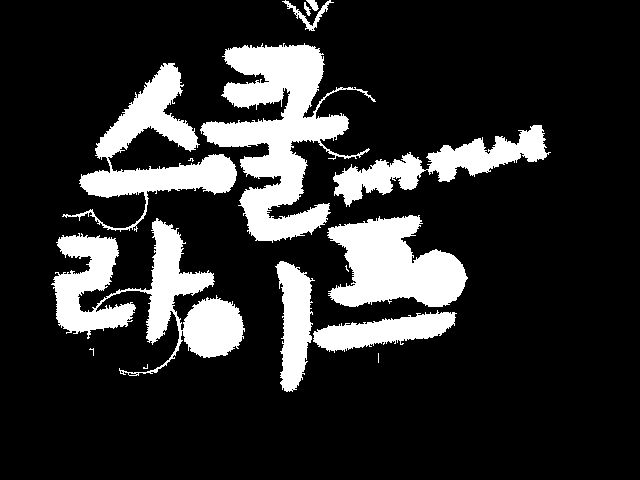 스쿨
라이프